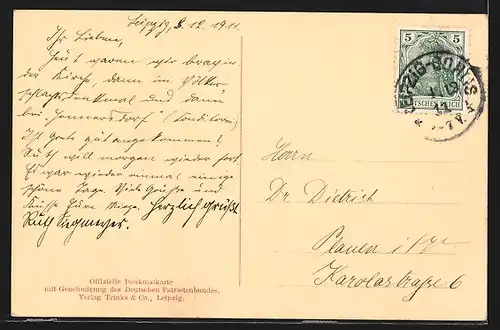 Leipzig, 3.12.1911.
Ihr Lieben,
Heut waren wir brav in
der Kirche, dann im Völker-
schlachtdenkmal und dann
bei Sommersdorf (Konditorei)
Ist Grete gut angekommen?
Ruth will morgen wieder fort
Es war wieder einmal einige
schöne Tage. Viele Grüße und
Küsse Eure
Herzlich grüßt
Ruth
Offizielle Denkmalkarte
mit Genehmigung des Deutschen Patriotenbundes.
Verlag Trinks & Co., Leipzig.
5 5
DEUTSCHES REICH
LEIPZIG-GOHLIS
Herrn
Dr. Dietrich
Plauen i/V.
Karolastraße 6